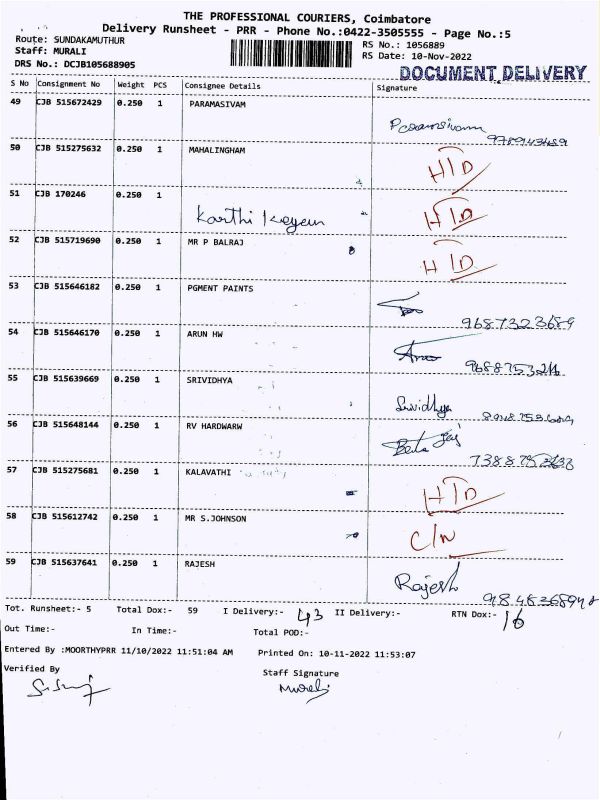 THE PROFESSIONAL COURIERS, Coimbatore
Delivery Runsheet - PRR - Phone No.:0422-3505555 - Page No.:5
Route: SUNDAKAMUTHUR
RS No.: 1056889
Staff: MURALI
RS Date: 10-Nov-2022
DRS No.: DCJB105688905
DOCUMENT DELIVERY
S No Consignment No Weight PCS Consignee Details Signature
49 CJB 515672429 0.250 1 PARAMASIVAM
50 CJB 515275632 0.250 1 MAHALINGHAM H/D
51 CJB 170246 0.250 1 Karthikeyan H/D
52 CJB 515719690 0.250 1 MR P BALRAJ H/D
53 CJB 515646182 0.250 1 PGMENT PAINTS 9687323689
54 CJB 515646170 0.250 1 ARUN HW
55 CJB 515639669 0.250 1 SRIVIDHYA Srividhya
56 CJB 515648144 0.250 1 RV HARDWARW
57 CJB 515275681 0.250 1 KALAVATHI H/D
58 CJB 515612742 0.250 1 MR S.JOHNSON C/N
59 CJB 515637641 0.250 1 RAJESH Rajesh
Tot. Runsheet:- 5 Total Dox:- 59 I Delivery:- 43 II Delivery:- RTN Dox:- 16
Out Time:- In Time:- Total POD:-
Entered By :MOORTHYPRR 11/10/2022 11:51:04 AM Printed On: 10-11-2022 11:53:07
Verified By Staff Signature
Murali